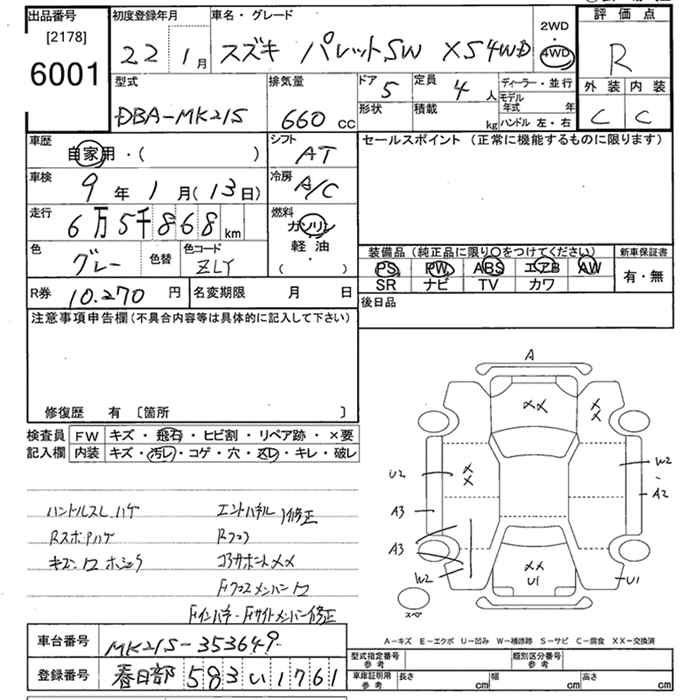 出品番号
[2178]
6001
初度登録年月
22 1月
車名・グレード
スズキ パレットSW XS 4WD
2WD
・
4WD
評価点
R
外装 内装
C C
型式
DBA-MK21S
排気量
660 cc
ドア 5
定員 4 人
形状
積載 kg
ディーラー・並行
モデル年式 年
ハンドル 左・右
車歴
自家用・( )
シフト
AT
セールスポイント (正常に機能するものに限ります)
車検
9年 1月(13日)
冷房
A/C
走行
6万5千868km
燃料
ガソリン
軽油
( ・ )
色
グレー
色替
色コード
ZLY
装備品(純正品に限り○をつけてください)
PS PW ABS エアB AW
SR ナビ TV カワ
新車保証書
有・無
R券 10.270円
名変期限 月 日
後日品
注意事項申告欄(不具合内容等は具体的に記入して下さい)
修復歴 有 [箇所 ]
検査員
記入欄
FW キズ・飛石・ヒビ割・リペア跡・×要
内装 キズ・汚レ・コゲ・穴・スレ・キレ・破レ
ハンドルスレ、ハゲ
エンドパネル 修正
Rフロア
コアサポート××
Fクロスメンバー
Fインパネ・Fサイドメンバー修正
A
××
××
U2
××
W2
A2
A3
A3
W2
××
U1
U1
スペ
A-キズ E-エクボ U-凹み W-補修跡 S-サビ C-腐食 XX-交換済
車台番号 MK21S-353649
登録番号 春日部 583 い 1761
型式指定番号 参考
類別区分番号 参考
車庫証明用 参考
長さ cm
幅 cm
高さ cm